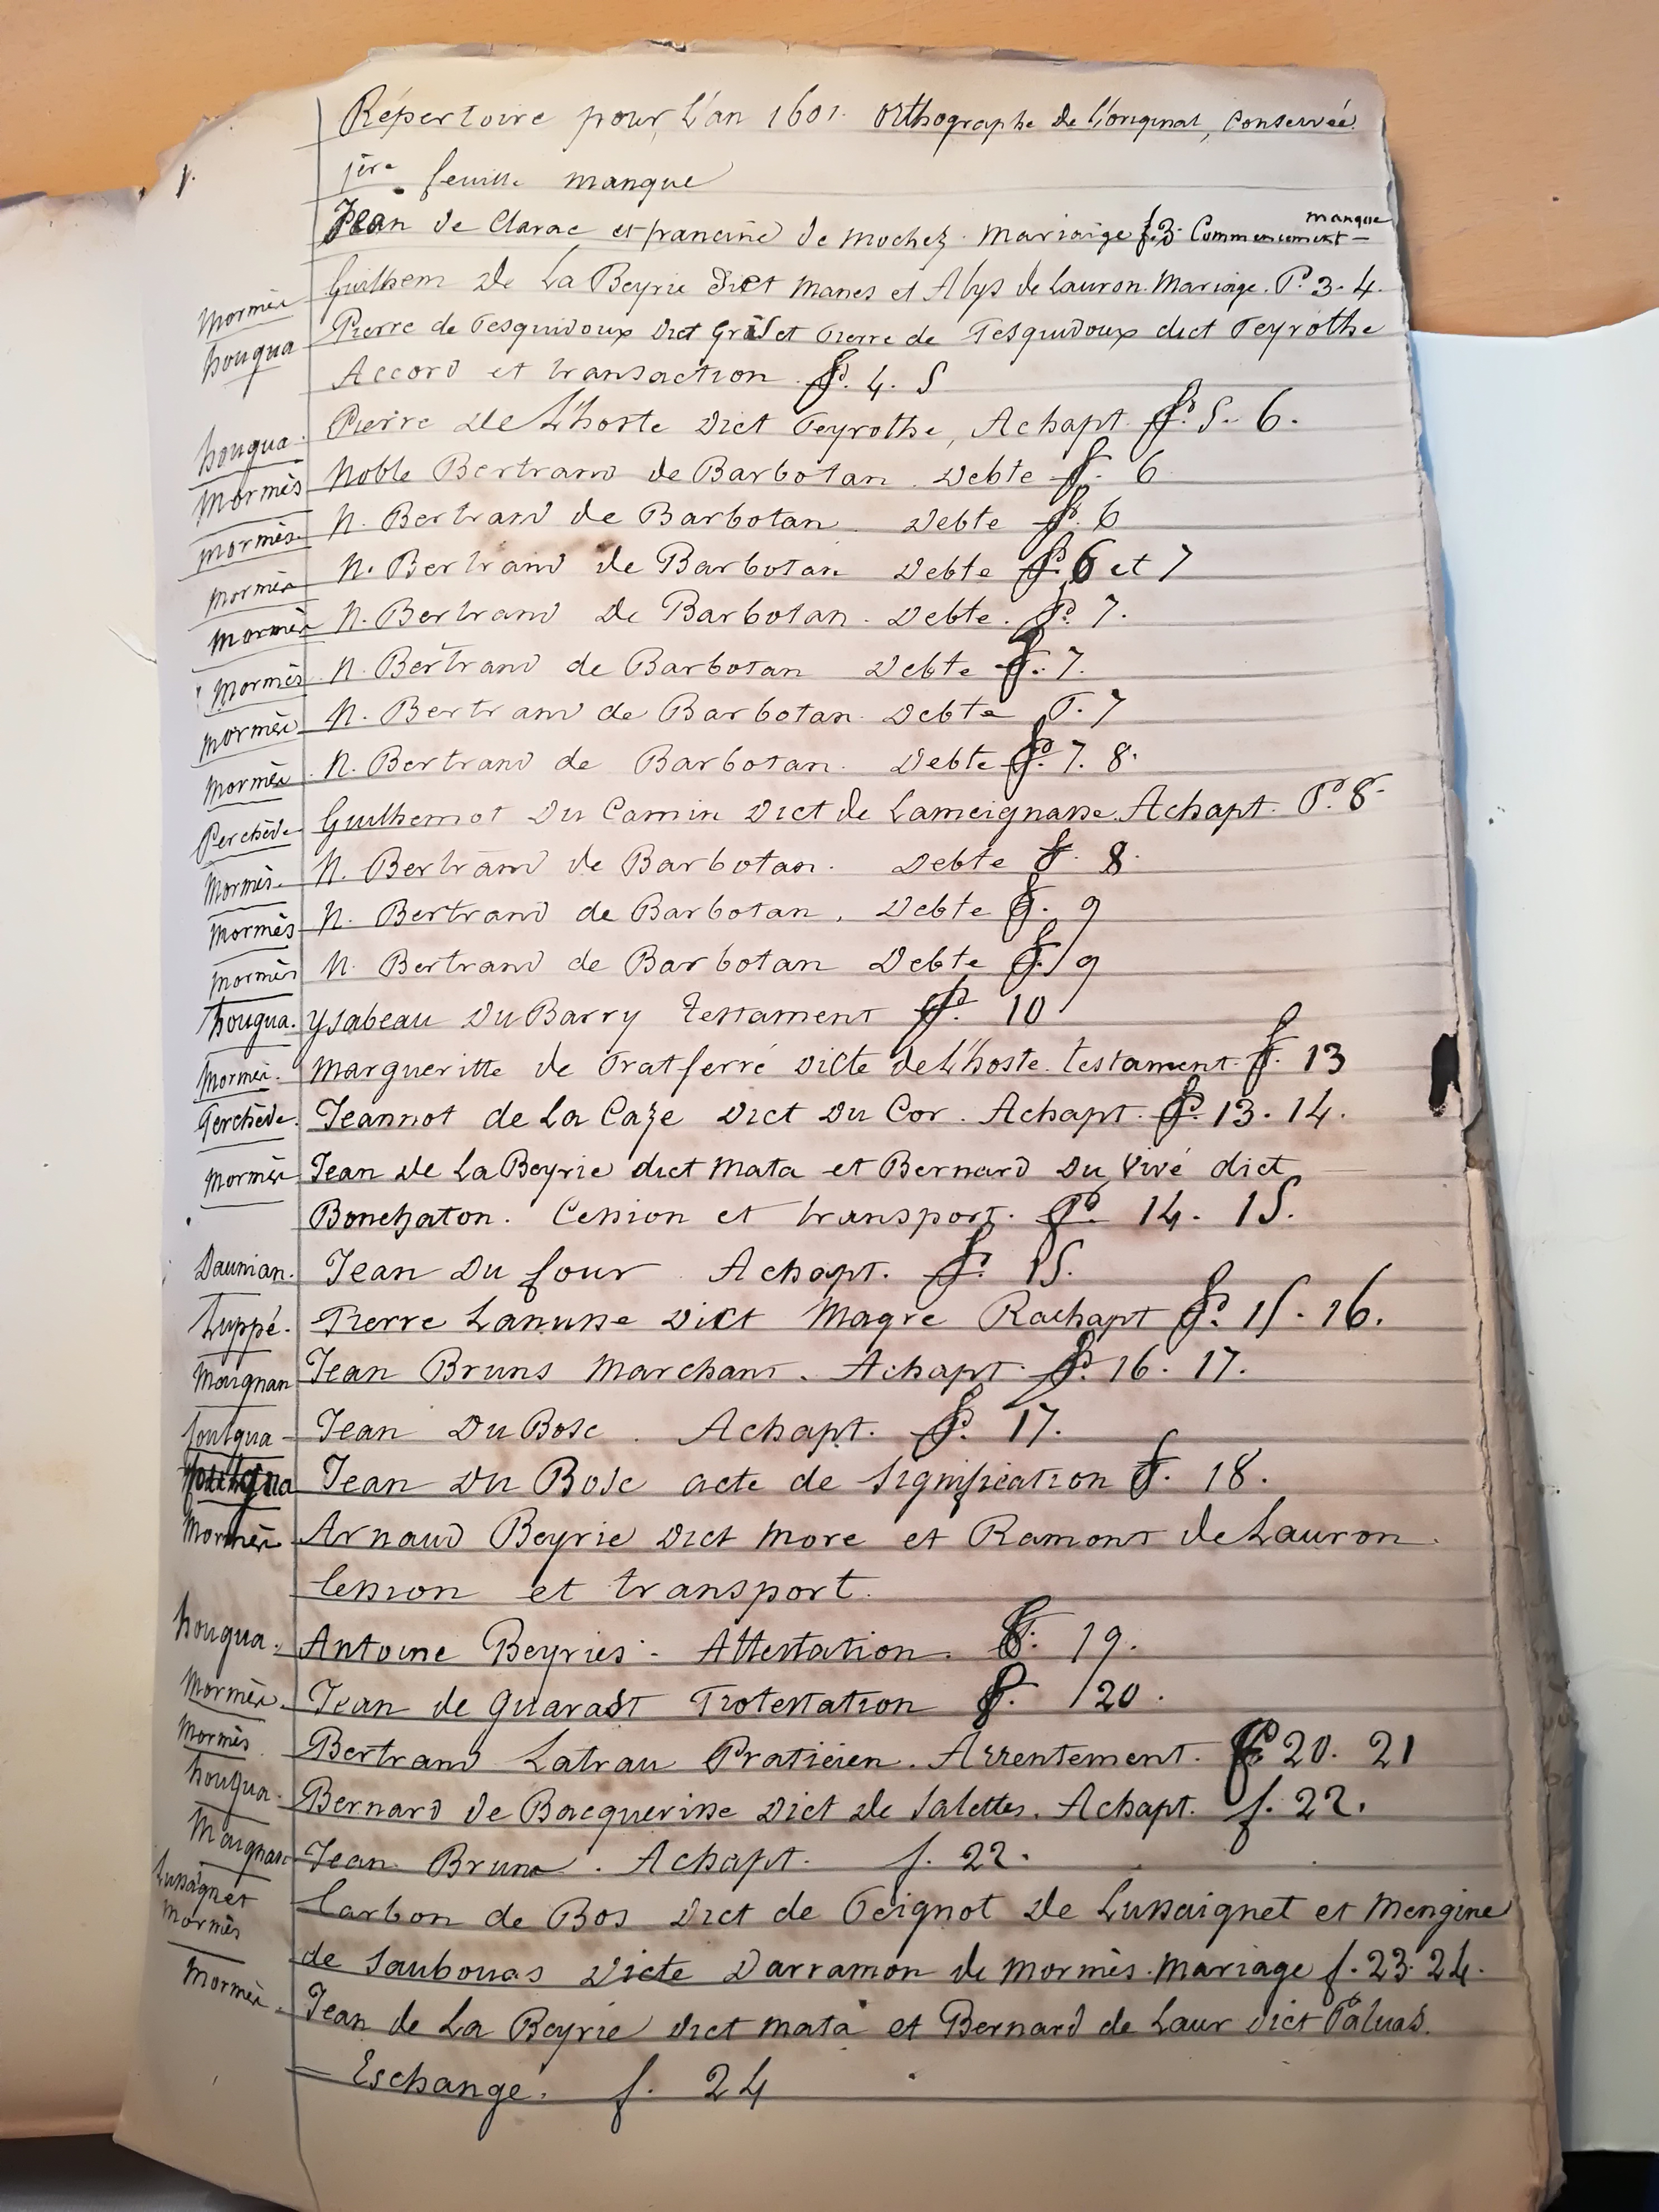 Répertoire pour L'an 1601. Orthographe de l'original, conservée.
1. 1ère feuille manque
Jean de Clarac et francine de Mochez. Mariaige f. 3. Commencement manque
Mormès Guilhem de La Beyrie dict Manes et Alys de Lauron. Mariage. P. 3. 4.
hougua Pierre de Tesquidoux dict Griset Pierre de Tesquidoux dict Peyrothe
Accord et transaction f. 4. 5
hougua. Pierre de L'hoste dict Peyrothe, Achapt. f. 5. 6.
Mormès Noble Bertrand de Barbotan. Debte f. 6
Mormès. N. Bertrand de Barbotan. Debte f. 6
Mormès N. Bertrand de Barbotan Debte f. 6 et 7
Mormès N. Bertrand de Barbotan. Debte. f. 7.
Mormès N. Bertrand de Barbotan Debte f. 7.
Mormès N. Bertrand de Barbotan. Debte P. 7
Mormès N. Bertrand de Barbotan. Debte f. 7. 8.
Perchède Guilhemot du Camin dict de Lameignasse. Achapt. P. 8.
Mormès. N. Bertrand de Barbotan. Debte f. 8.
Mormès N. Bertrand de Barbotan. Debte f. 9
Mormès N. Bertrand de Barbotan Debte f. 9
hougua. Ysabeau du Barry testament f. 10
Mormès. Margueritte de Pratferré dicte de L'hoste. testament. f. 13
Perchède. Jeannot de La Caze dict du Cor. Achapt. f. 13. 14.
Mormès Jean de La Beyrie dict Mata et Bernard du Vivé dict
Bonehaton. Cession et transport. f. 14. 15.
Daunian. Jean du four. Achapt. f. 15.
Luppé. Pierre Lanusse dict Magre Rachapt f. 15. 16.
Maignan Jean Bruns Marchant. Achapt. f. 16. 17.
foulgua Jean du Bosc. Achapt. f. 17.
Jean du Bosc acte de signification f. 18.
Mormès Arnaud Beyrie dict More et Ramont de Lauron.
Cession et transport.
hougua. Antoine Beyries. Attestation. f. 19.
Mormès. Jean de Guarast Protestation f. 20.
Mormès Bertrand Latrau Praticien. Arrentement. f. 20. 21
hougua. Bernard de Bacquerisse dict de Salettes. Achapt. f. 22.
Maignan Jean Brune. Achapt. f. 22.
Lussaignet Mormès Carbon de Bos dict de Peignot de Lussaignet et Mengine
de Saubouas dicte Darramon de Mormès. Mariage f. 23. 24.
Mormès. Jean de La Beyrie dict Mata et Bernard de Laur dict Paluas.
Eschange. f. 24